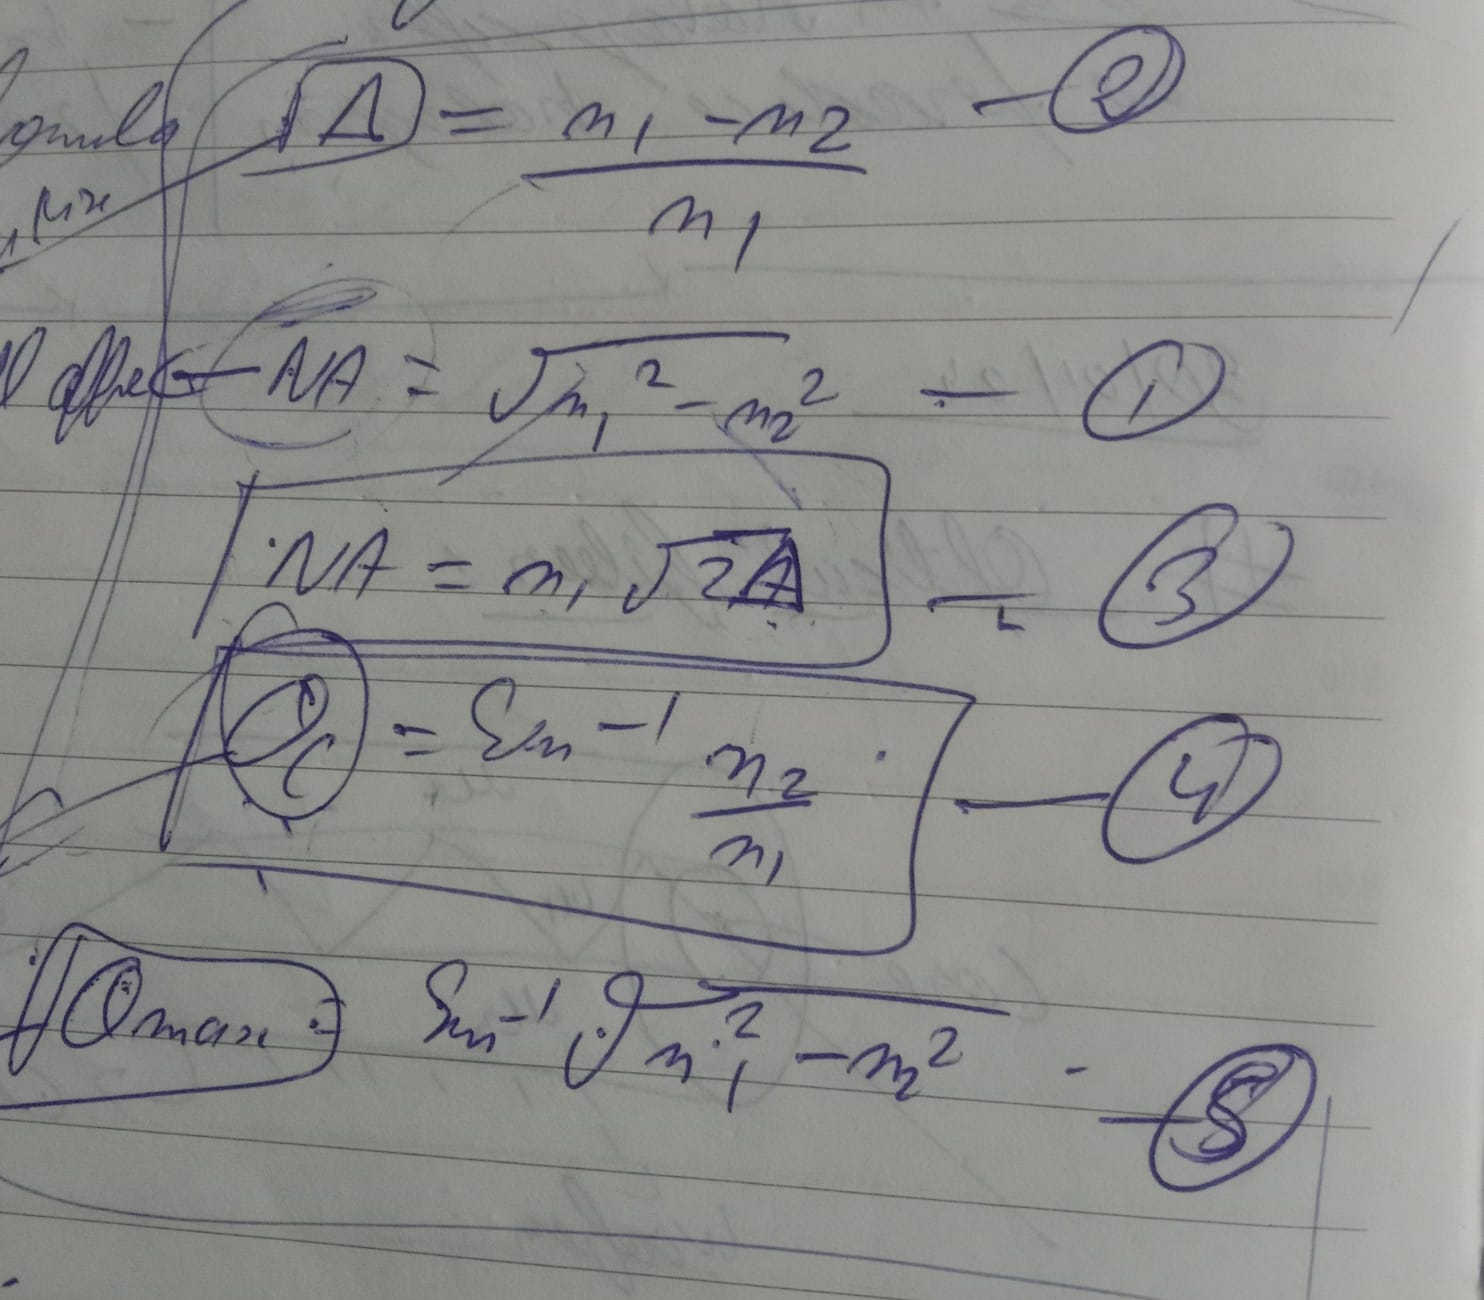 Δ = n₁ - n₂ / n₁ — ②
NA = √n₁² - n₂² — ①
NA = n₁ √2Δ — ③
θc = Sin⁻¹ n₂ / n₁ — ④
θmax = Sin⁻¹ √n₁² - n₂² — ⑤